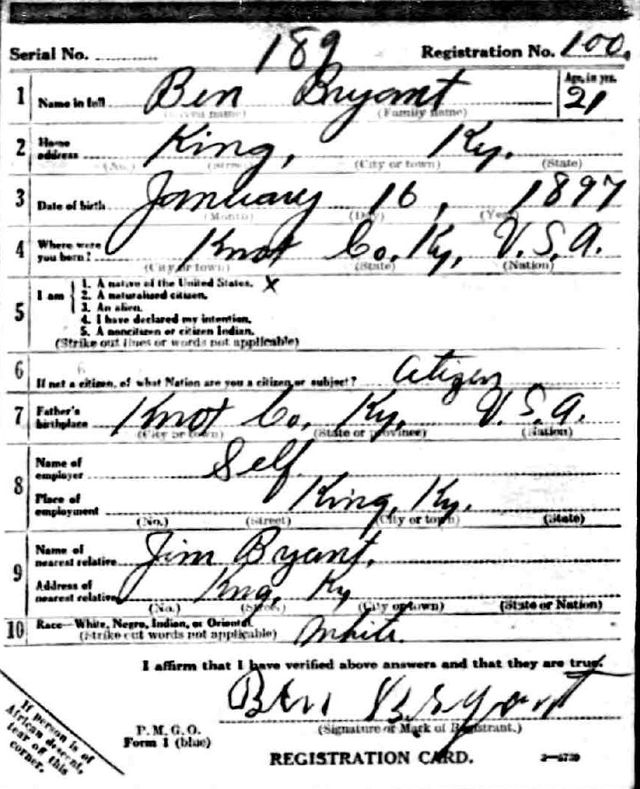 Serial No. 189 Registration No. 100.
1 Name in full Ben Bryant Age, in yrs. 21
(Given name) (Family name)
2 Home address King, Ky.
(No.) (Street) (City or town) (State)
3 Date of birth January 16, 1897
(Month) (Day) (Year)
4 Where were you born? Knot Co. Ky. U.S.A.
(City or town) (State) (Nation)
5 I am
1. A native of the United States. X
2. A naturalized citizen.
3. An alien.
4. I have declared my intention.
5. A noncitizen or citizen Indian.
(Strike out lines or words not applicable)
6 If not a citizen, of what Nation are you a citizen or subject? Citizen
7 Father's birthplace Knot Co. Ky. U.S.A.
(City or town) (State or province) (Nation)
8 Name of employer Self
Place of employment King, Ky.
(No.) (Street) (City or town) (State)
9 Name of nearest relative Jim Bryant.
Address of nearest relative Kng, Ky
(No.) (Street) (City or town) (State or Nation)
10 Race—White, Negro, Indian, or Oriental. White.
(Strike out words not applicable)
I affirm that I have verified above answers and that they are true.
Ben Bryant
P. M. G. O. (Signature or Mark of Registrant.)
Form 1 (blue)
REGISTRATION CARD.
If person is of
African descent,
tear off this
corner.